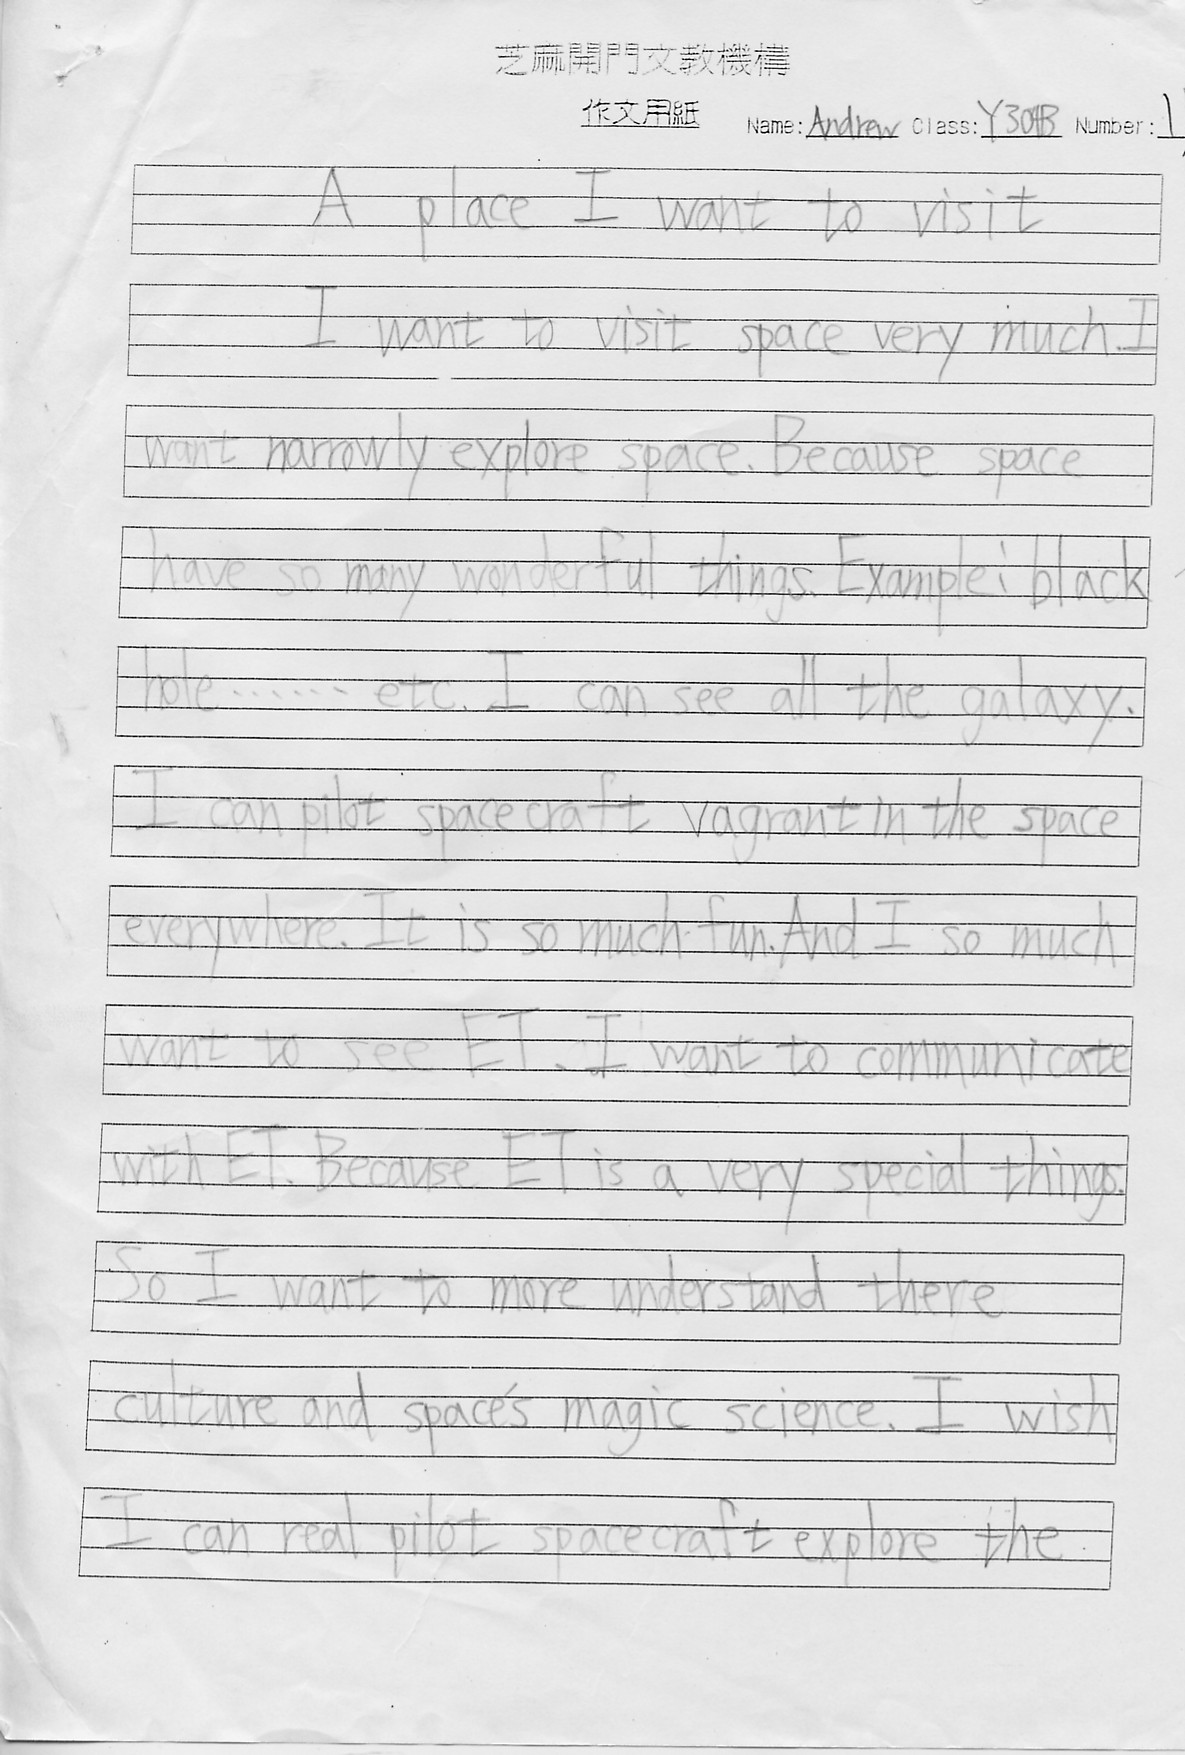 芝麻開門文教機構
作文用紙 Name: Andrew Class: Y304B Number: 1
A place I want to visit
I want to visit space very much. I
want narrowly explore space. Because space
have so many wonderful things. Example: black
hole ...... etc. I can see all the galaxy.
I can pilot spacecraft vagrant in the space
everywhere. It is so much fun. And I so much
want to see ET. I want to communicate
with ET. Because ET is a very special things.
So I want to more understand there
culture and space's magic science. I wish
I can real pilot spacecraft explore the